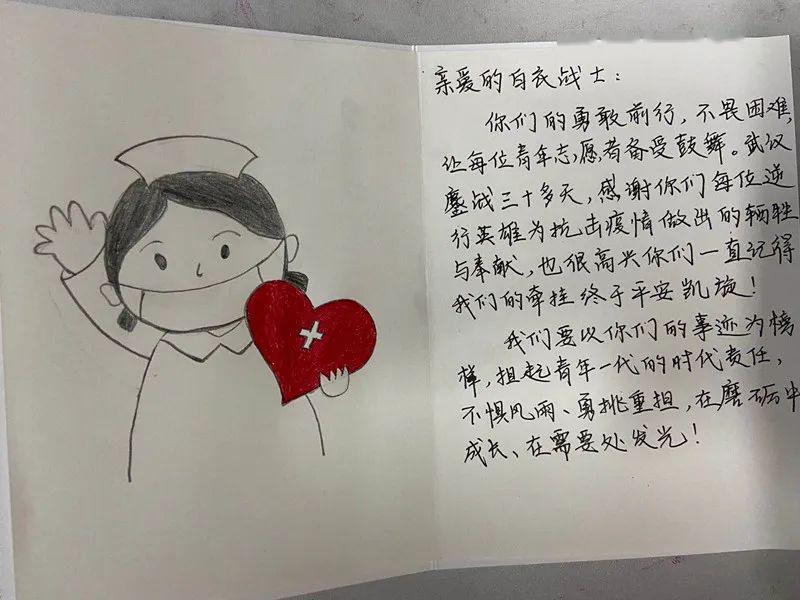 亲爱的白衣战士：
你们的勇敢前行，不畏困难，
让每位青年志愿者备受鼓舞。武汉
鏖战三十多天，感谢你们每位逆
行英雄为抗击疫情做出的牺牲
与奉献，也很高兴你们一直记得
我们的牵挂终于平安凯旋！
我们要以你们的事迹为榜
样，担起青年一代的时代责任，
不惧风雨、勇挑重担，在磨砺中
成长、在需要处发光！